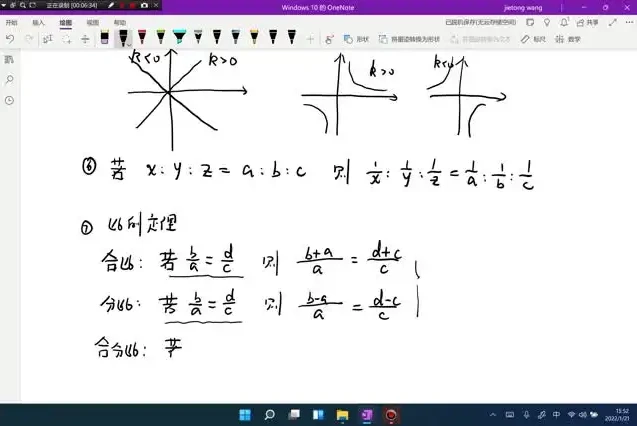 正在录制 [00:06:34]
Windows 10 的 OneNote
jietong wang
开始 插入 绘图 视图 帮助
已脱机保存(无云存储空间) 共享
形状 将墨迹转换为形状 将墨迹转换为文本 标尺 数学
k<0 k>0 k>0 k<0
⑥ 若 x:y:z=a:b:c 则 1/x:1/y:1/z=1/a:1/b:1/c
⑦ 比例定理
合比: 若 b/a=d/c 则 (b+a)/a=(d+c)/c
分比: 若 b/a=d/c 则 (b-a)/a=(d-c)/c
合分比: 若
中
15:52
2022/1/21